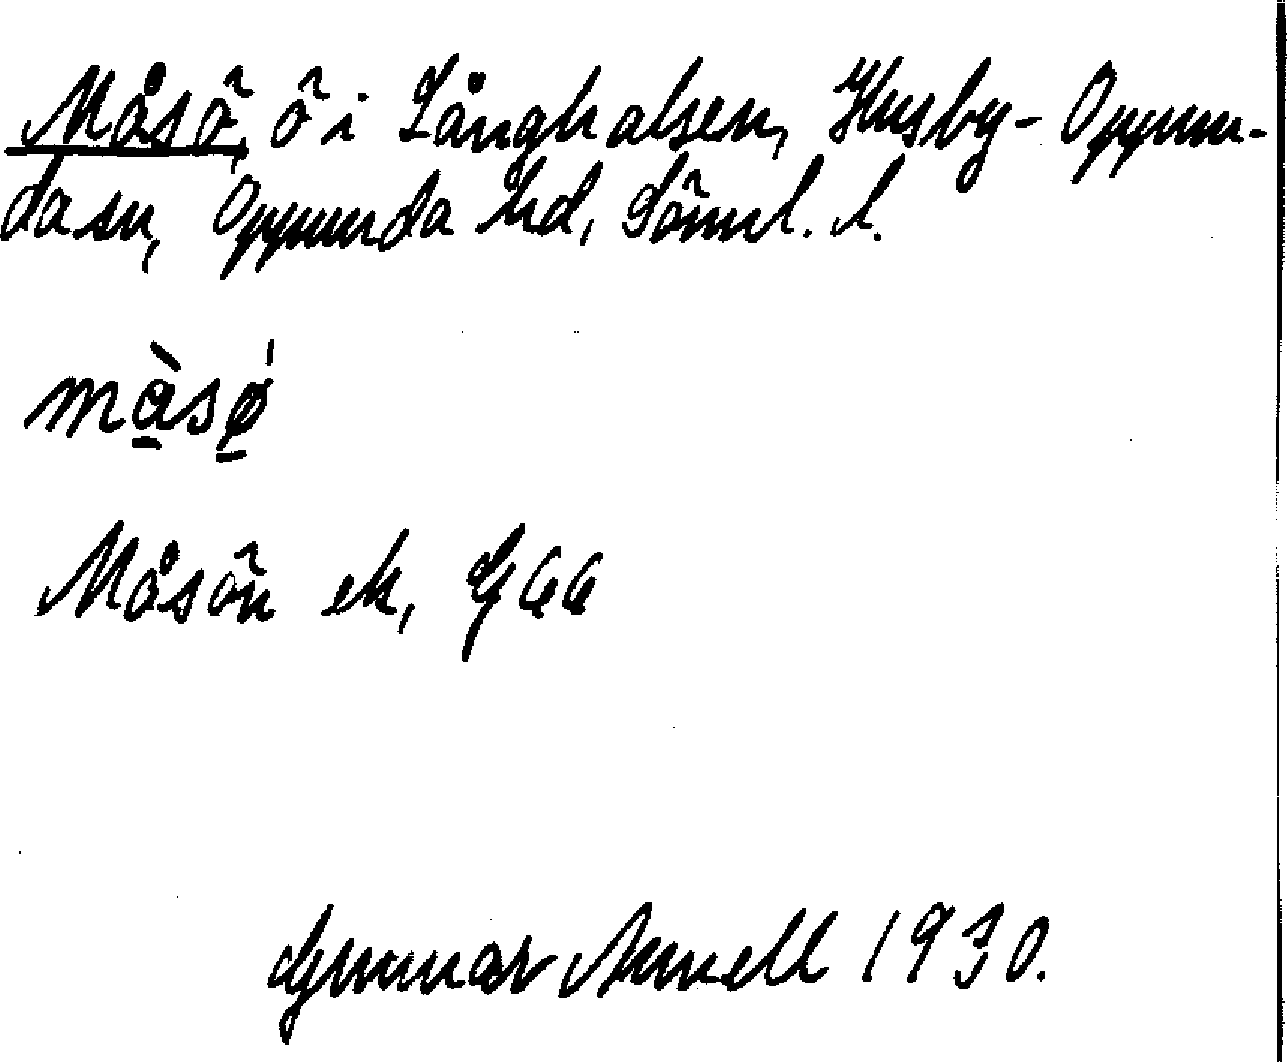 Måsö, ö i Långhalsen, Husby-Oppun-
da sn, Oppunda hd, Söml. l.
màsø
Måsön ek, G66
Gunnar Arnell 1930.